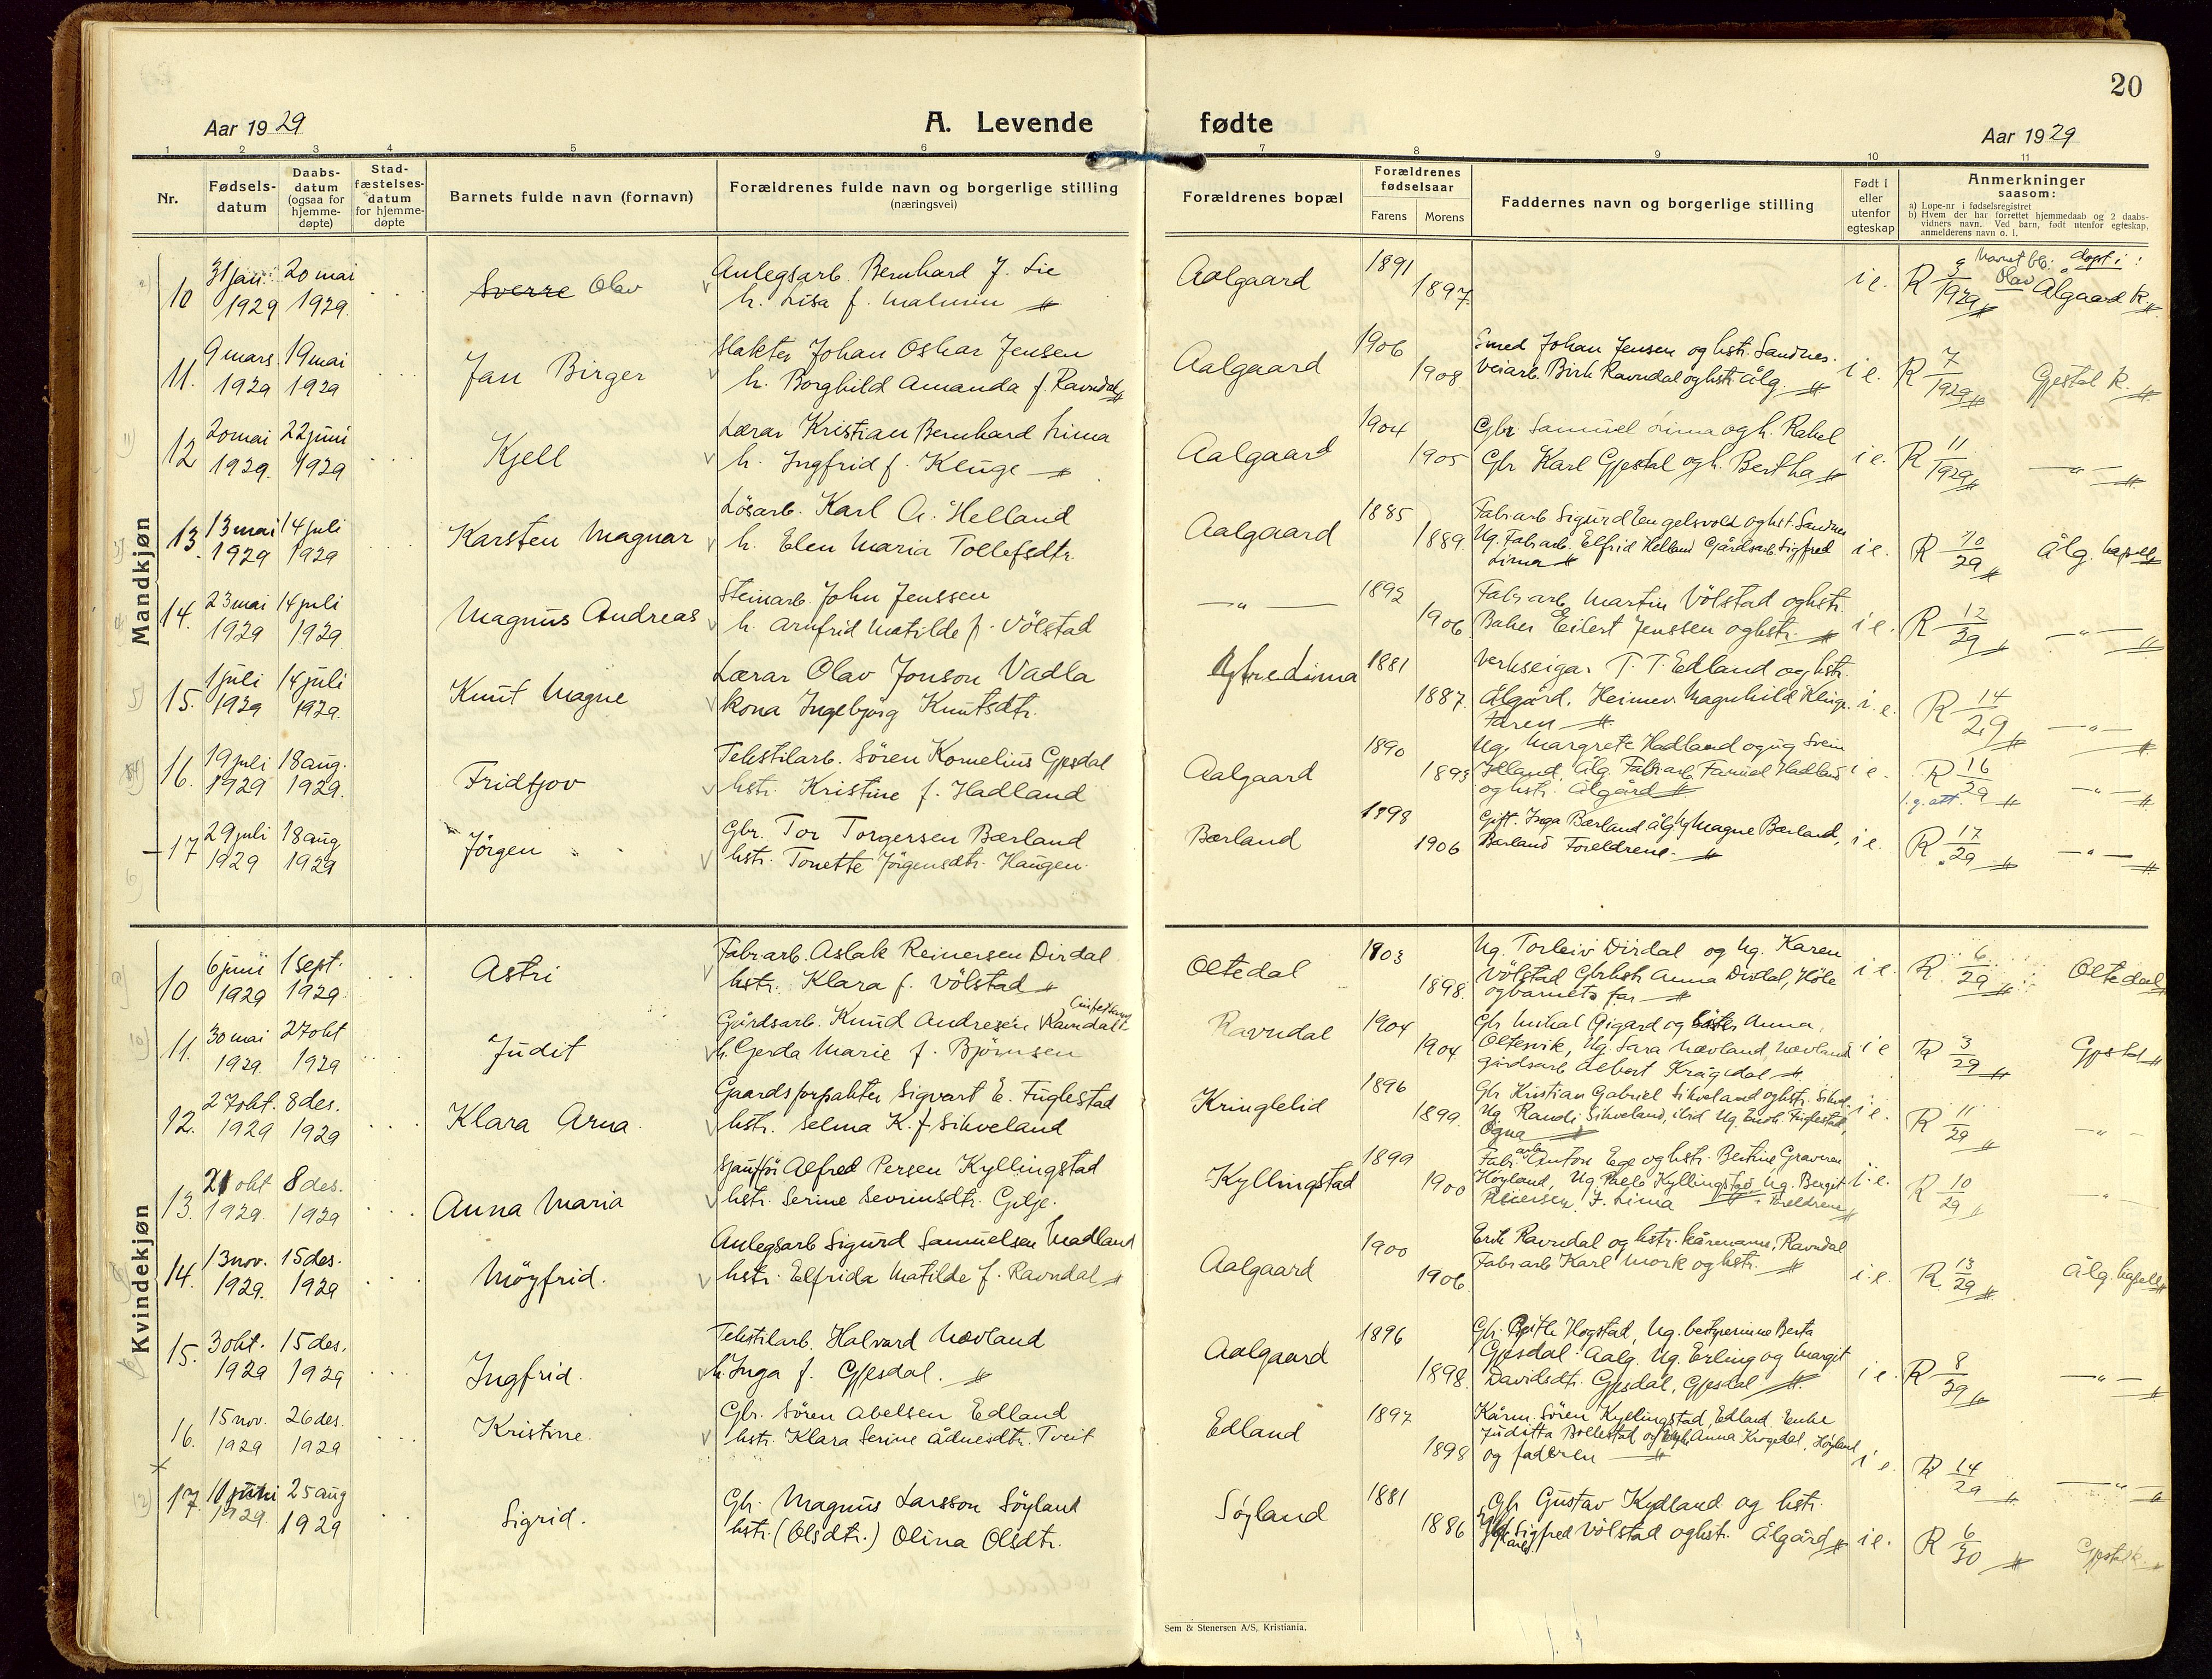 20
Aar 1929
A. Levende fødte
Aar 1929
1 2 3 4 5 6 7 8 9 10 11
Nr.
Fødsels-
datum
Daabs-
datum
(ogsaa for
hjemme-
døpte)
Stad-
fæstelses-
datum
for hjemme-
døpte
Barnets fulde navn (fornavn)
Forældrenes fulde navn og borgerlige stilling
(næringsvei)
Forældrenes bopæl
Forældrenes
fødselsaar
Farens Morens
Faddernes navn og borgerlige stilling
Født i
eller
utenfor
egteskap
Anmerkninger
saasom:
a) Løpe-nr i fødselsregistret
b) Hvem der har forrettet hjemmedaab og 2 daabs-
vidners navn. Ved barn, født utenfor egteskap,
anmelderens navn o. l.
Mandkjøn
10 31 jan. 1929 20 mai 1929. Sverre Olav
Anlegsarb. Bernhard J. Lie
h. Lisa f. Malmin
Aalgaard 1891 1897. i e. R 9/1929 døpt i: Olav Ålgaard k.
11. 9 mars. 1929 19 mai 1929 Jan Birger
Slakter Johan Oskar Jensen
h. Borghild Amanda f. Ravndal
Aalgaard 1906 1908
Smed Johan Jensen og hstr. Sandnes.
Veiarb. Birk Ravndal og hstr. Ålg.
i e. R 7/1929 Gjestal k.
12 20 mai 1929. 22 juni 1929 Kjell
Lærar Kristian Bernhard Lima
h. Ingfrid f. Kluge
Aalgaard 1904 1905
Gbr. Samuel Lima og h. Rakel
Gbr Karl Gjestal og h. Bertha
i e. R 11/1929 — " —
13. 13 mai 1929 14 juli 1929 Karsten Magnar
Lösarb. Karl A. Helland
h. Elen Maria Tollefsdtr.
Aalgaard 1885 1889.
Fabrarb Sigurd Engelsvold og hst. Sandnes
Ug. Fabrarb. Elfrid Helland Gjårdsarb Sigfred
Lima
i e. R 10/29 Ålg. kapell
14. 23 mai 1929 14 juli 1929 Magnus Andreas
Steinarb. John Jenssen
h. Arnfrid Matilde f. Völstad
— " — 1892 1906
Fabrarb Martin Völstad og hstr.
Baker Eilert Jenssen og hstr.
i e. R 12/29 — " —
15. 1 juli 1929 14 juli 1929. Knut Magne
Lærar Olav Jonson Vadla
kona Ingebjörg Knutsdtr.
Øfre Lima 1881 1887.
Verkseigar T. T. Edland og hstr.
Ålgård, Heimev. Magnhild Kluge.
Faren
i. e. R 14/29 — " —
16. 19 juli 1929 18 aug. 1929. Fridtjov
Tekstilarb. Sören Kornelius Gjesdal
hstr. Kristine f. Hadland
Aalgaard 1890 1893
Ug. Margrete Hadland og ug Svein
Hadland Ålg. Fabrarb. Hadland
og hstr. Ålgård
i e. R 16/29 — " —
17 29 juli 1929 18 aug 1929 Jörgen
Gbr. Tor Torgersen Bærland
hstr. Tonette Jörgensdtr. Haugen.
Bærland 1898 1906
Gift. Inga Bærland Ålg. Ug Magne Bærland,
Bærland Foreldrene.
i e. R 17/29 — " —
Kvindekjøn
10 6 juni 1929 1 sept. 1929. Astri
Fabrarb. Aslak Reinersen Dirdal
hstr. Klara f. Völstad
Oltedal 1903 1898.
Ug. Torleiv Dirdal og Ug. Karen
Völstad Gbrhstr Anna Dirdal, Höle
og barnets far
i e. R 6/29 Oltedal
11. 30 mai 1929. 27 okt 1929 Judit
Gårdsarb. Knud Andresen Ravndal
h. Gerda Marie f. Björnsen
Ravndal 1904 1904.
Gbr Mikal Gigard og Anna,
Oltesvik, Ug. Sara Nævland, Nævland
gårdsarb Albert Krågedal
i e R 3/29 Gjestal
12. 27 okt. 1929 8 des. 1929 Klara Arna.
Gaardsforpakter Sigvart E. Fuglestad
hstr. Selma K. f Sikveland
Kringlelid 1896 1899.
Gbr Kristian Gabriel Sikveland og hstr. Sikvel.
Ug. Randi Sikveland, ibid Ug. Endr. Fuglestad,
Ogna
i e. R 11/29 — " —
13. 21 okt 1929. 8 des. 1929 Anna Maria
Sjauffør Alfred Persen Kyllingstad
hstr. Serine Sevrinsdtr. Gilje.
Kyllingstad 1899 1900
Fabr.arb Anton Ege og hstr. Bertine Graveren
Høyland, Ug. Palle Kyllingstad Ug. Bergit
Pedersen, J. Lima Foreldrene
i. e. R 10/29 "
14. 13 nov. 1929. 15 des. 1929 Möyfrid.
Anlegsarb Sigurd Samuelsen Madland
hstr. Elfrida Matilde f. Ravndal
Aalgaard 1900 1906.
Erik Ravndal og hstr. kårmann, Ravndal
Fabrarb Karl Mork og hstr.
i. e. R. 13/29 Ålg. kapell
15. 3 okt. 1929 15 des. 1929 Ingfrid.
Tekstilarb. Halvard Nævland
h. Inga f. Gjesdal.
Aalgaard 1896 1898.
Gbr. Hogstad, Ug. bestyrerinne Berta
Gjesdal Aalg. Ug. Erling og Margit
Davidsdtr. Gjesdal, Gjesdal
i e. R 8/29 — " —
16. 15 nov. 1929 26 des. 1929 Kristine.
Gbr. Sören Abelsen Edland
hstr. Klara Serine Ådnesdtr. Tveit
Edland 1897 1898
Kårm. Sören Kyllingstad, Edland. Enke
Juditta Bollestad og Anna Krogedal, Höyland
og faderen
i e. R 14/29 — " —
17. 11 juni 1929 25 aug 1929 Sigrid.
Gbr. Magnus Larsson Söyland
hstr. (Olsdtr.) Olina Olsdtr.
Söyland 1881 1886
Gbr Gustav Kydland og hstr.
Sigfred Völstad og hstr. Ålgård
i e. R 6/30 Gjestal k.
Sem & Stenersen A/S, Kristiania.